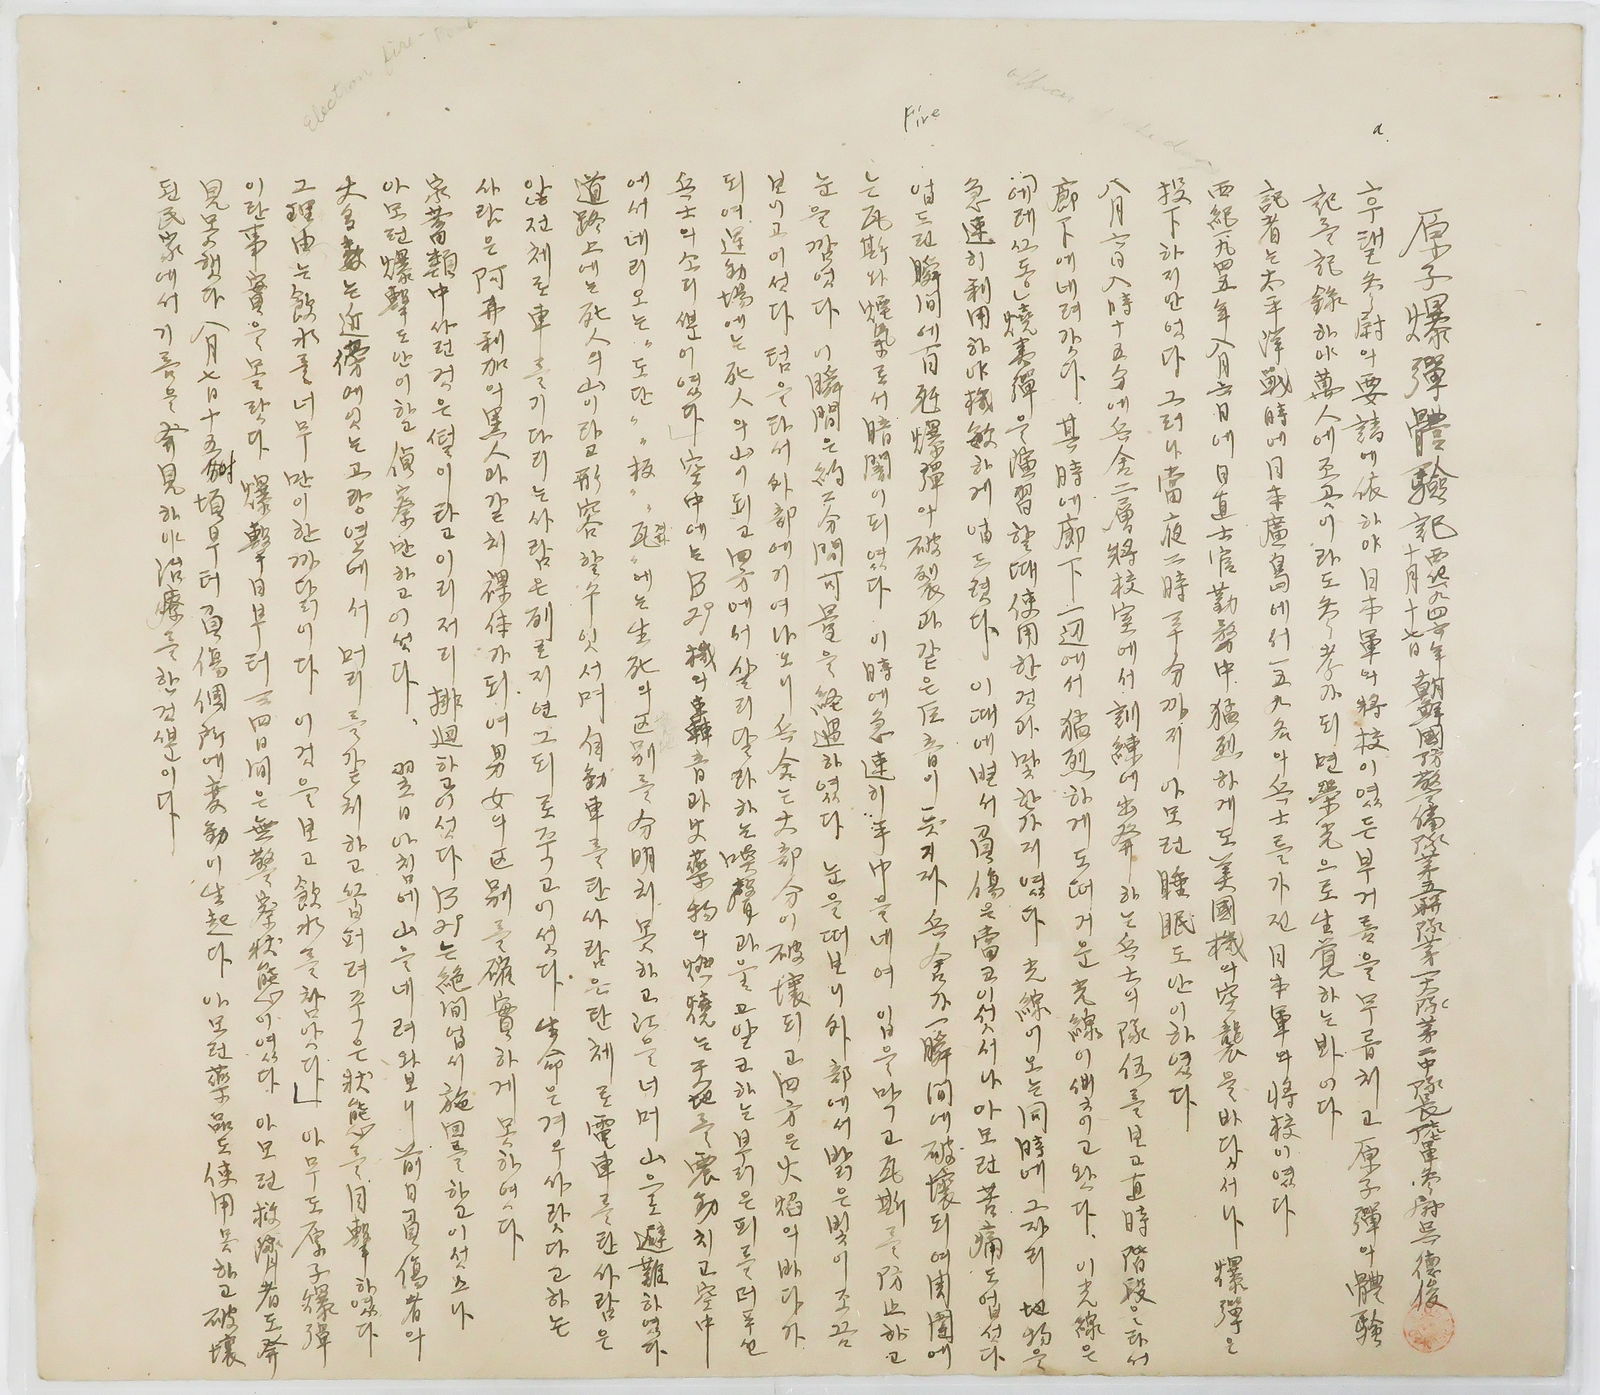 原子爆彈體驗記 西紀一九四六年十月十七日 朝鮮國防警備隊第五聯隊第一大隊第二中隊長陸軍參尉 吳德俊
하우댈 少尉의 要請에 依하야 日本軍의 將校이엿든 부거름을 무릅치고 原子彈의 體驗
記를 記錄하야 萬人에 조곰이라도 參考가 되면 榮光으로 生覺하는 바이다
記者는 太平洋戰時에 日本廣島에서 一五九名의 兵士를 가진 日本軍의 將校이엿다
西紀一九四五年八月六日에 日直士官 勤務中 猛烈하게도 美國機의 空襲을 바다서나 爆彈은
投下하지 안엇다 그러나 當夜 二時 三十分까지 아모런 睡眠도 안이하엿다
八月六日 八時十五分에 兵舍 二層 將校室에서 訓練에 出發하는 兵士의 隊伍를 보고 直時 階段을 타서
廊下에 네려갓다. 其時에 廊下 一辺에서 猛烈하게도 떠거운 光線이 빛추이고 왓다. 이 光線은
「에레크동」燒夷彈을 演習할 때 使用한 것과 맟한가지엿다 光線이 오는 同時에 그자리 地物을
急速히 利用하야 機敏하게 업드렷다. 이때에 벌서 負傷은 當코 이섯서나 아모런 苦痛도 업섯다
업드런 瞬間에 百雷爆彈이 破裂과 같은 巨音이 듯기자 兵舍가 一瞬間에 破壞되여 周圍에
는 瓦斯와 煙氣로서 暗闇이 되엿다 이 時에 急速히 手巾을 네여 입을 막고 瓦斯를 防止하고
눈을 깜엇다. 이 瞬間은 約二分間可量을 經過하엿다 눈을 떠보니 外部에서 밝은 빛이 조끔
보니고 이섯다 텀을 타서 外部에 기여나오니 兵舍는 大部分이 破壞되고 四方은 火焰의 바다가
되여 運動場에는 死人의 山이 되고 四方에서 살리달라하는 哭聲과 울고 알코하는 부러은 피를 며우선
兵士의 소리뿐이엿다」空中에는 B29機의 轟音과 火藥物의 燃燒는 天地를 震動치고 空中
에서 네리오는 "도단" "板" "瓦"에는 生死의 区別를 分明치 못하고 江을 너머 山으로 避難하엿다
道路上에는 死人의 山이라고 形容할 수 잇서며 自動車를 탄 사람은 단 체로 電車를 탄 사람은
안전체로 車를 기다리는 사람은 列을 지연 그되로 죽고 이섯다. 生命은 겨우 사랏다고 하는
사람은 阿弗利加의 黑人과 같치 裸体가 되여 男女의 区別를 確實하게 못하엿다
家蓄類中 사런 것은 털이 타고 이리저리 排迴하고 이섯다 B29는 絶間업서 旋回를 하고 이섯스나
아모런 爆擊도 안이하고 偵察만 하고 이섯다. 翌日 아침에 山을 네려와보니 前日負傷者의
大多數는 近傍에 잇는 고랑 옆에서 머리를 갗치하고 엎더려 주군 狀態를 目擊하엿다
그 理由는 飮水를 너무 만이 한 까닭이다 이것을 보고 飮水를 참앗다」 아무도 原子爆彈
이란 事實을 몰랏다 爆擊日부터 三四日間은 無警察狀態이엿다 아모런 救濟者도 發
見못햇다 八月七日 十五時頃부터 負傷個所에 變動이 生起다 아모런 藥品도 使用못하고 破壞
된 民家에서 기름을 發見하야 治療를 한 것뿐이다
Fire
a
Election fire-bomb